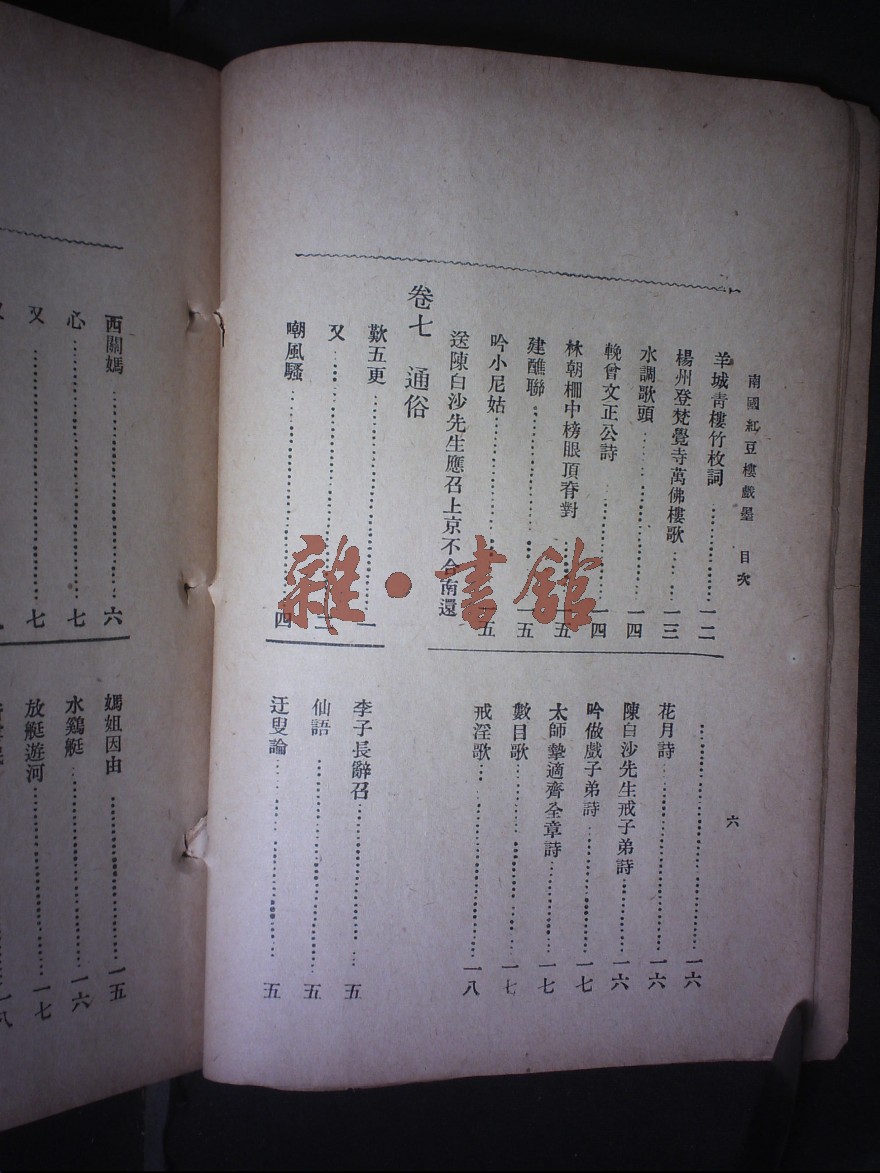 南國紅豆樓戲墨 目次
六
羊城青樓竹枚詞 一二
楊州登梵覺寺萬佛樓歌 一三
水調歌頭 一四
輓曾文正公詩 一四
林朝棚中榜眼頂脊對 一五
建醮聯 一五
吟小尼姑 一五
送陳白沙先生應召上京不合南還
一六
花月詩 一六
陳白沙先生戒子弟詩 一六
吟做戲子弟詩 一七
太師摯適齊全章詩 一七
數目歌 一七
戒淫歌 一八
卷七 通俗
歎五更 一
又 二
嘲風騷 四
李子長辭召 五
仙語 五
迂叟論 五
西關媽 六
心 七
又 七
媽姐因由 一五
水鷄艇 一六
放艇遊河 一七
一八
雜·書館